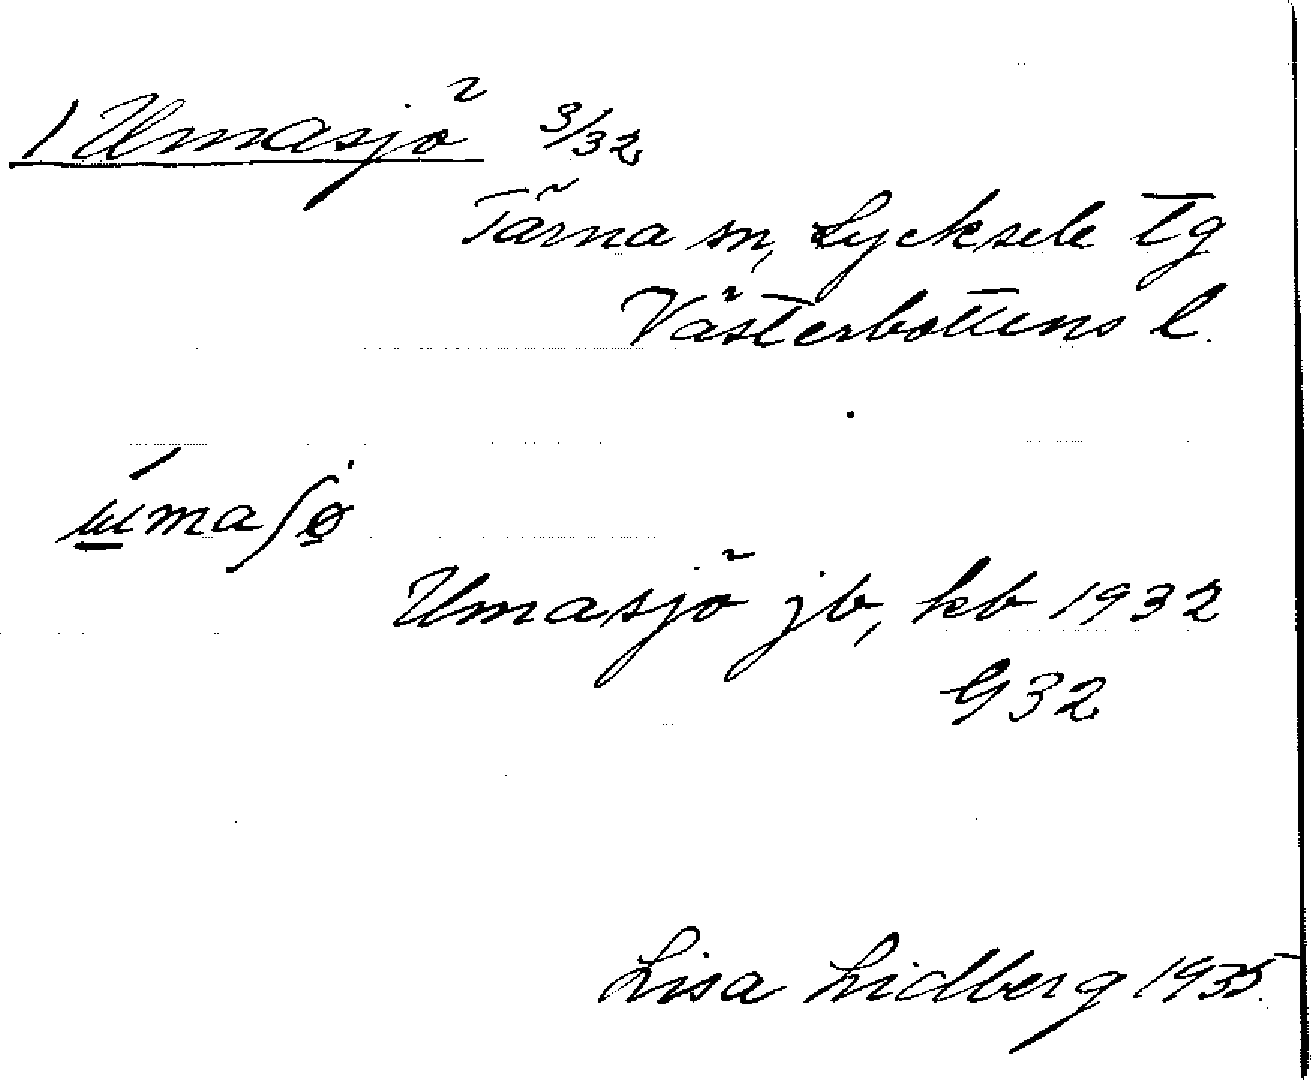 1 Umasjö 3/32
Tärna sn, Lycksele tg
Västerbottens l.
Umasjö jb, kb 1932
G 32
Lisa Lidberg 1935.